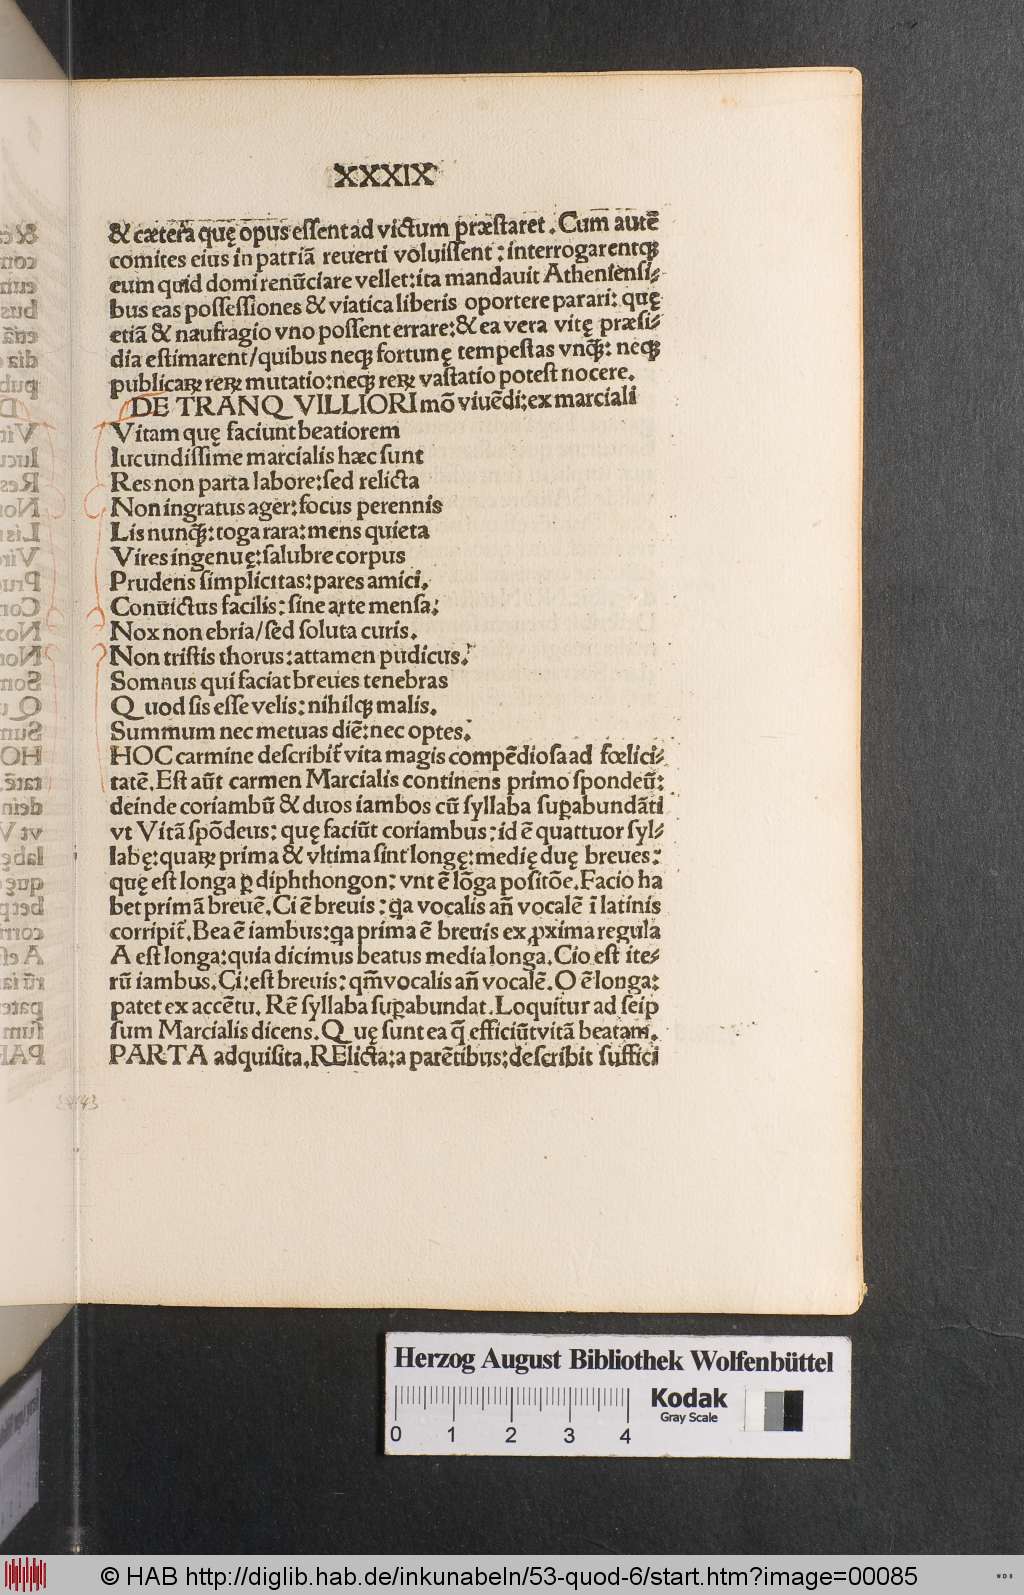 XXXIX
& cætera quę opus essent ad victum præstaret. Cum autē
comites eius in patriā reuerti voluissent: interrogarentqꝫ
eum quid domi renūciare vellet: ita mandauit Atheniensi⸗
bus eas possessiones & viatica liberis oportere parari: quę
etiā & naufragio vno possent errare: & ea vera vitę præsi⸗
dia estimarent/quibus neqꝫ fortunę tempestas vnq̄ꝫ: neqꝫ
publicaꝝ reꝝ mutatio: neqꝫ reꝝ vastatio potest nocere.
DE TRANQ VILLIORI mō viuēdi: ex marciali
Vitam quę faciunt beatiorem
Iucundissime marcialis hæc sunt
Res non parta labore: sed relicta
Non ingratus ager: focus perennis
Lis nunq̄ꝫ: toga rara: mens quieta
Vires ingenuę: salubre corpus
Prudens simplicitas: pares amici.
Conūictus facilis: sine arte mensa:
Nox non ebria/sed soluta curis.
Non tristis thorus: attamen pudicus.
Somnus qui faciat breues tenebras
Q uod sis esse velis: nihilqꝫ malis.
Summum nec metuas diē: nec optes.
HOC carmine describit᷑ vita magis compēdiosa ad fœlici⸗
tatē. Est aūt carmen Marcialis continens primo spondeū:
deinde coriambū & duos iambos cū syllaba suꝑabundāti
vt Vitā spōdeus: quę faciūt coriambus: id ē quattuor syl⸗
labę: quaꝝ prima & vltima sint longę: medię duę breues:
quę est longa ꝑ diphthongon: vnt ē lōga positōe. Facio ha
bet primā breuē. Ci ē breuis: qa vocalis añ vocalē ī latinis
corripit᷑. Bea ē iambus: qa prima ē breuis ex ꝓxima regula
A est longa: quia dicimus beatus media longa. Cio est ite⸗
rū iambus. Ci: est breuis: qm̄ vocalis añ vocalē. O ē longa:
patet ex accētu. Rē syllaba suꝑabundat. Loquitur ad seip
sum Marcialis dicens. Q uę sunt ea q̄ efficiūt vitā beatam.
PARTA adquisita. RElicta: a parētibus: describit suffici
Herzog August Bibliothek Wolfenbüttel
Kodak
Gray Scale
0 1 2 3 4
© HAB http://diglib.hab.de/inkunabeln/53-quod-6/start.htm?image=00085